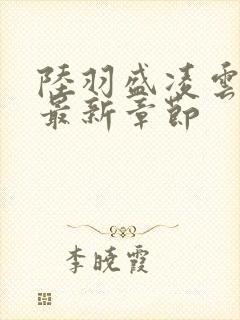 陸羽盛凌雲
最新章節
李曉霞